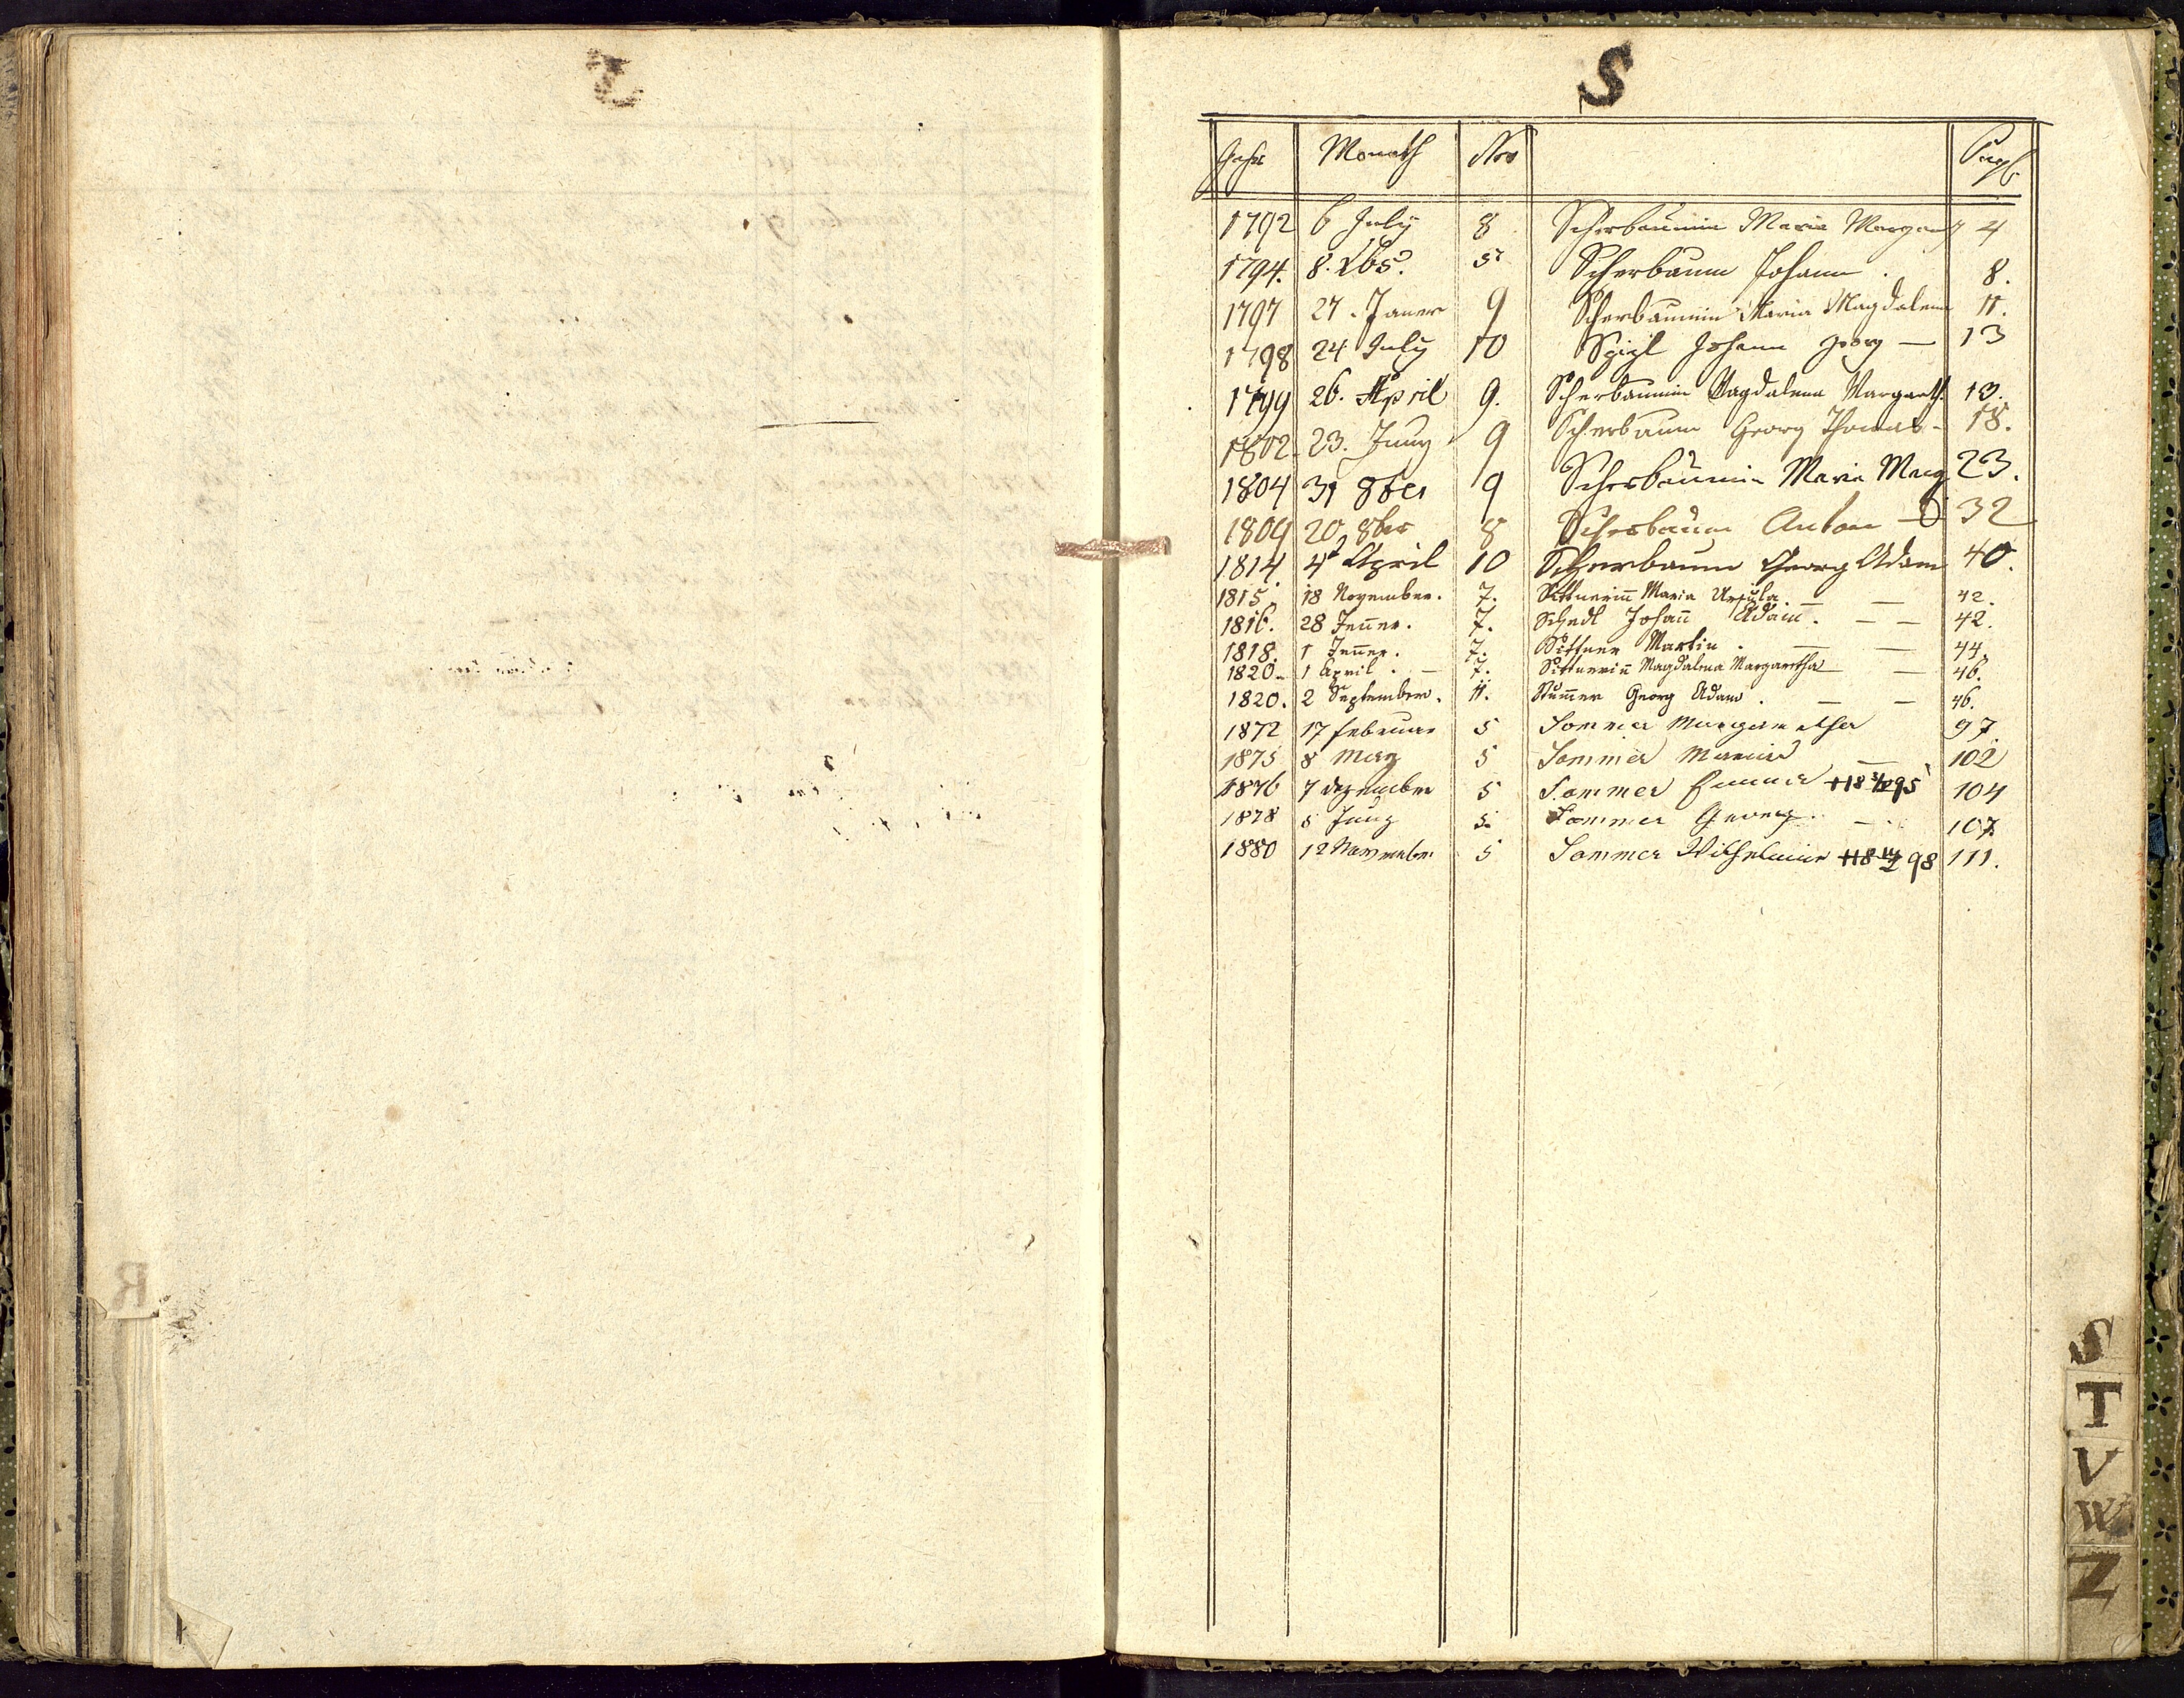 S
Jahr Monath Nro Pag:
1792 6 July 8 Scherbaumin Maria Margar 4
1794. 8. Xbr. 5 Scherbaum Johann. 8.
1797 27. Janer 9 Scherbaumin Maria Magdalena 11.
1798 24 July 10 Spigl Johann Georg — 13
1799 26. April 9. Scherbaumin Magdalena Margareth. 13.
1802. 23. Juny 9 Scherbaum Georg Thomas - 18.
1804 31 8ber 9 Scherbaumin Maria Marg 23.
1809 20 8ber 8 Scherbaum Anton — 32
1814 4t April 10 Scherbaum Georg Adam 40.
1815 18 November. 7. Sittnerin̄ Maria Ursula. — — 42.
1816. 28 Jen̄er. 7. Schedl Johan̄ Adam. — — 42.
1818. 1 Jen̄er. 7. Sittner Martin. — — 44.
1820. 1 April. — 7. Sittnerin̄ Magdalena Margaretha — — 46.
1820. 2 September. 11. Stum̄er Georg Adam. — — 46.
1872 17 februar 5 Sommer Margaretha 97.
1875 8 März 5 Sommer Maria — 102
1876 7 dezember 5 Sommer Emma +18 5/12 95 104
1878 5 Juny 5. Sommer Georg. — 107.
1880 12 November 5 Sommer Wilhelmine +18 98 111.
S
T
V
W
Z
R